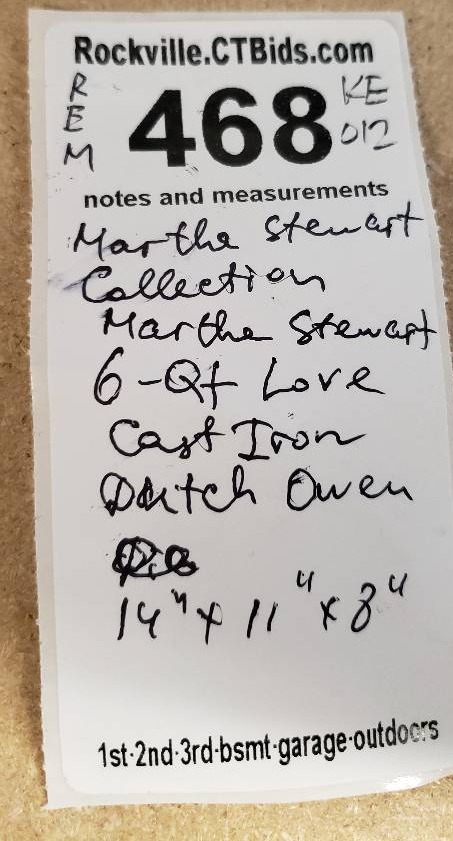 Rockville.CTBids.com
REM 468 KE 012
notes and measurements
Martha Stewart
Collection
Martha Stewart
6-Qt Love
Cast Iron
Dutch Owen
14" x 11" x 8"
1st-2nd-3rd-bsmt-garage-outdoors